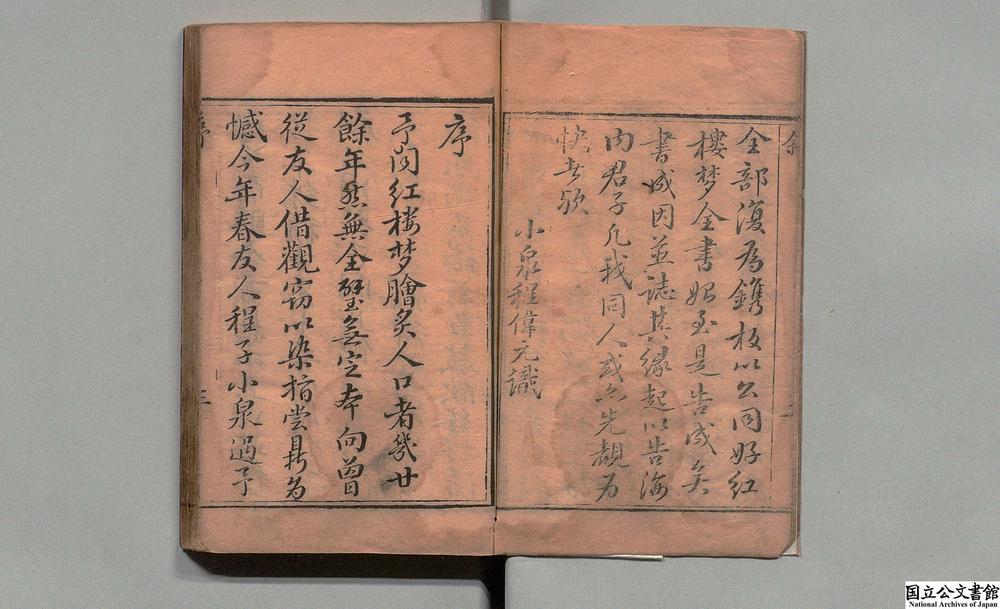 全部復為鐫板以公同好紅
樓夢全書始至是告成矣
書成因並誌其緣起以告海
內君子凡我同人或亦先覩為
快者歟
小泉程偉元識
序
予聞红楼梦膾炙人口者幾廿
餘年然無全璧無定本向曾
從友人借觀竊以染指嘗鼎為
憾今年春友人程子小泉過予
序
三
国立公文書館
National Archives of Japan